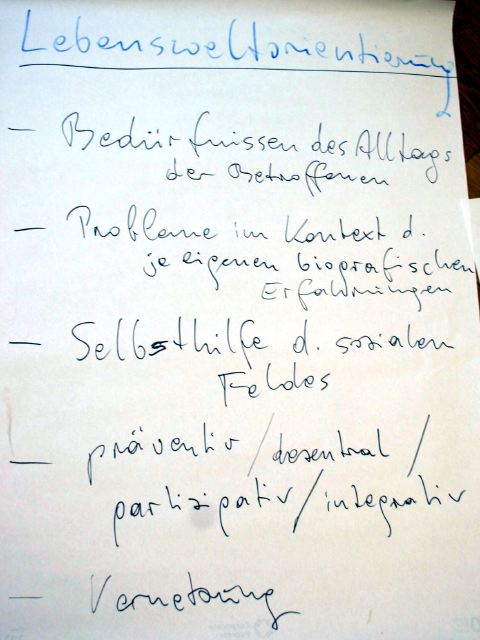 Lebensweltorientierung
– Bedürfnissen des Alltags
der Betroffenen
– Probleme im Kontext d.
je eigenen biografischen
Erfahrungen
– Selbsthilfe d. sozialen
Feldes
– präventiv / dezentral /
partizipativ / integrativ
– Vernetzung